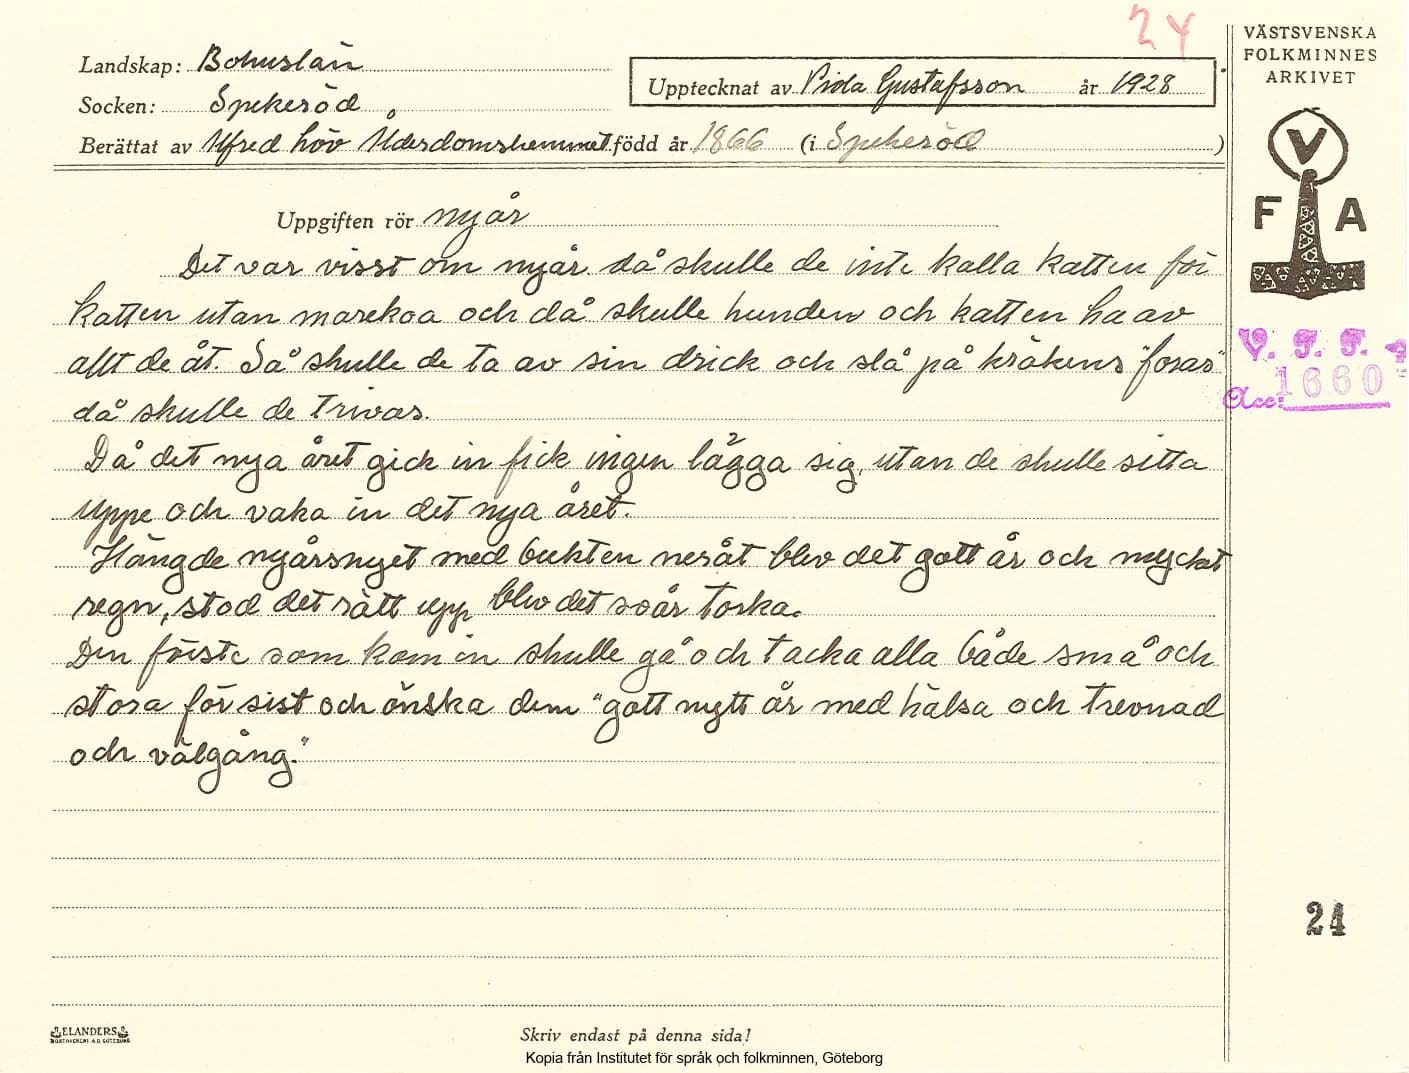 24
Landskap: Bohuslän
Socken: Spekeröd
Upptecknat av Vida Gustafsson år 1928
Berättat av Alfred Löv Ålderdomshemmet född år 1866 (i Spekeröd)
VÄSTSVENSKA
FOLKMINNES
ARKIVET
V
F A
Uppgiften rör nyår
Det var visst om nyår då skulle de inte kalla katten för
katten utan marekoa och då skulle hunden och katten ha av
allt de åt. Så skulle de ta av sin drick och slå på kräkens "foras"
då skulle de trivas.
Då det nya året gick in fick ingen lägga sig, utan de skulle sitta
uppe och vaka in det nya året.
Hängde nyårsnyet med bukten neråt blev det gott år och mycket
regn, stod det rätt upp blev det svår torka.
Den förste som kom in skulle gå och tacka alla både små och
stora för sist och önska dem "gott nytt år med hälsa och trevnad
och välgång."
V. F. F.
Acc: 1660
24
ELANDERS
Skriv endast på denna sida!
Kopia från Institutet för språk och folkminnen, Göteborg